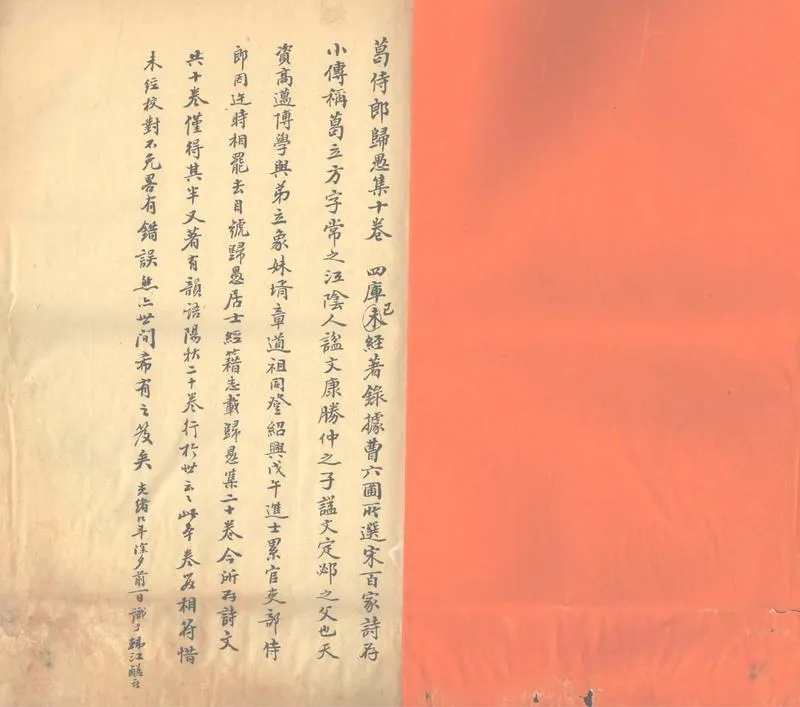 葛侍郎歸愚集十卷　四庫未已經著錄據曹六圃所選宋百家詩存
小傳稱葛立方字常之江陰人謚文康勝仲之子謚文定邲之父也天
資高邁博學與弟立象妹壻章道祖同登紹興戊午進士累官吏部侍
郎因迕時相罷去自號歸愚居士經籍志載歸愚集二十卷今所存詩文
共十卷僅得其半又著有韻語陽秋二十卷行於世云云此本卷數相符惜
未經校對不免畧有錯誤然亦世間希有之笈矣 光緒 年除夕前一日識于 江